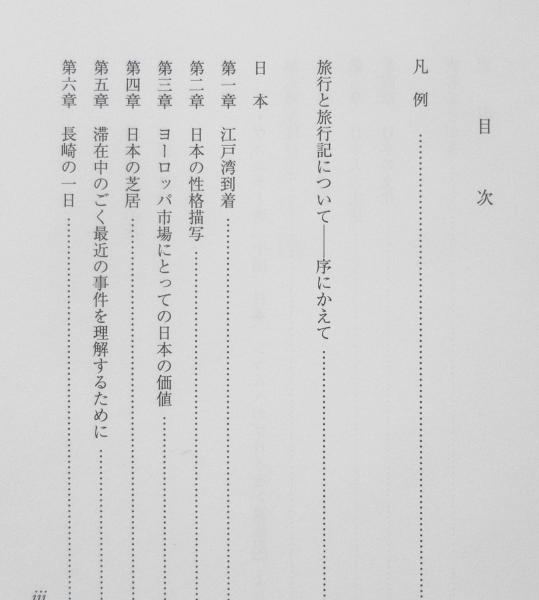 目次
凡例……………………………
旅行と旅行記について――序にかえて……………………………
日本
第一章 江戸湾到着……………………………
第二章 日本の性格描写……………………………
第三章 ヨーロッパ市場にとっての日本の価値……………………………
第四章 日本の芝居……………………………
第五章 滞在中のごく最近の事件を理解するために……………………………
第六章 長崎の一日……………………………
iii